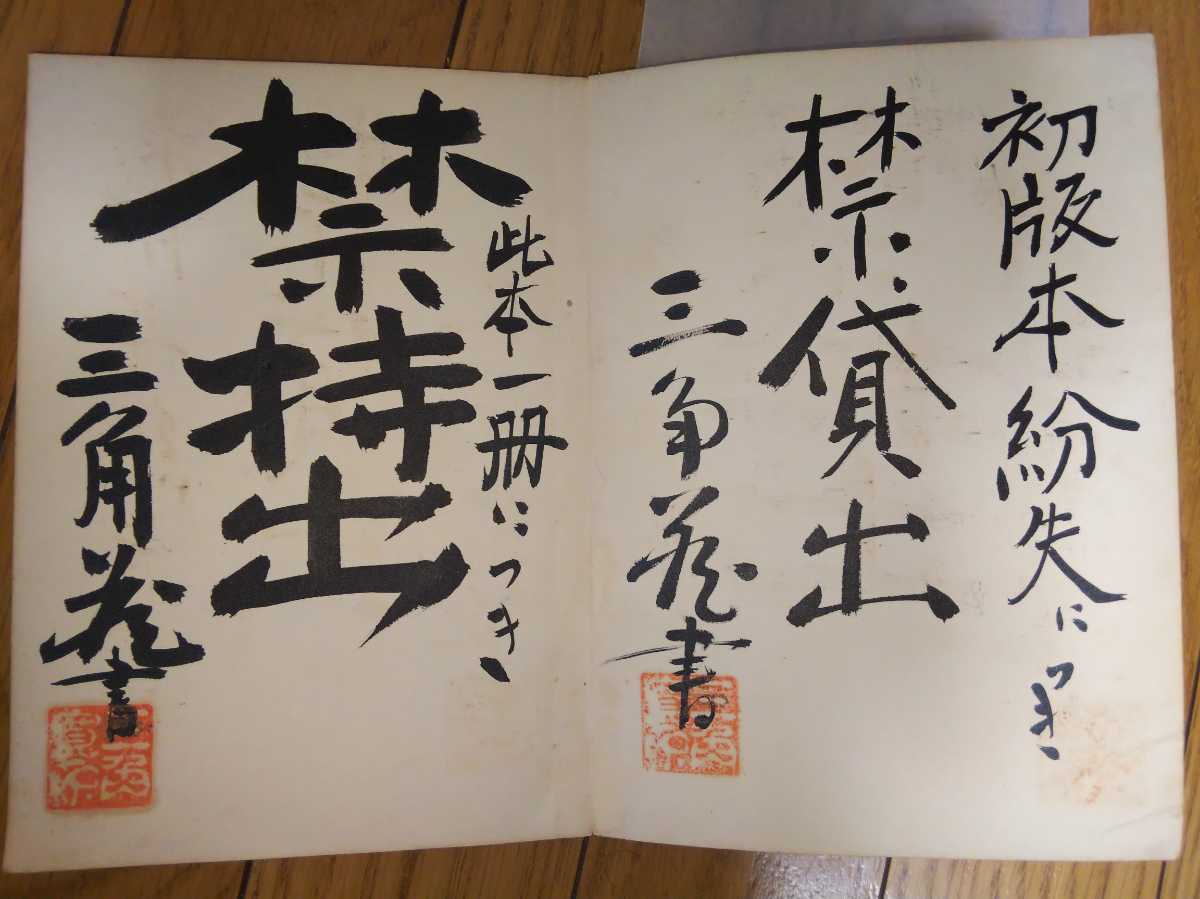 初版本紛失につき、
禁貸出
三角寛書
此本一冊につき、
禁持出
三角寛書